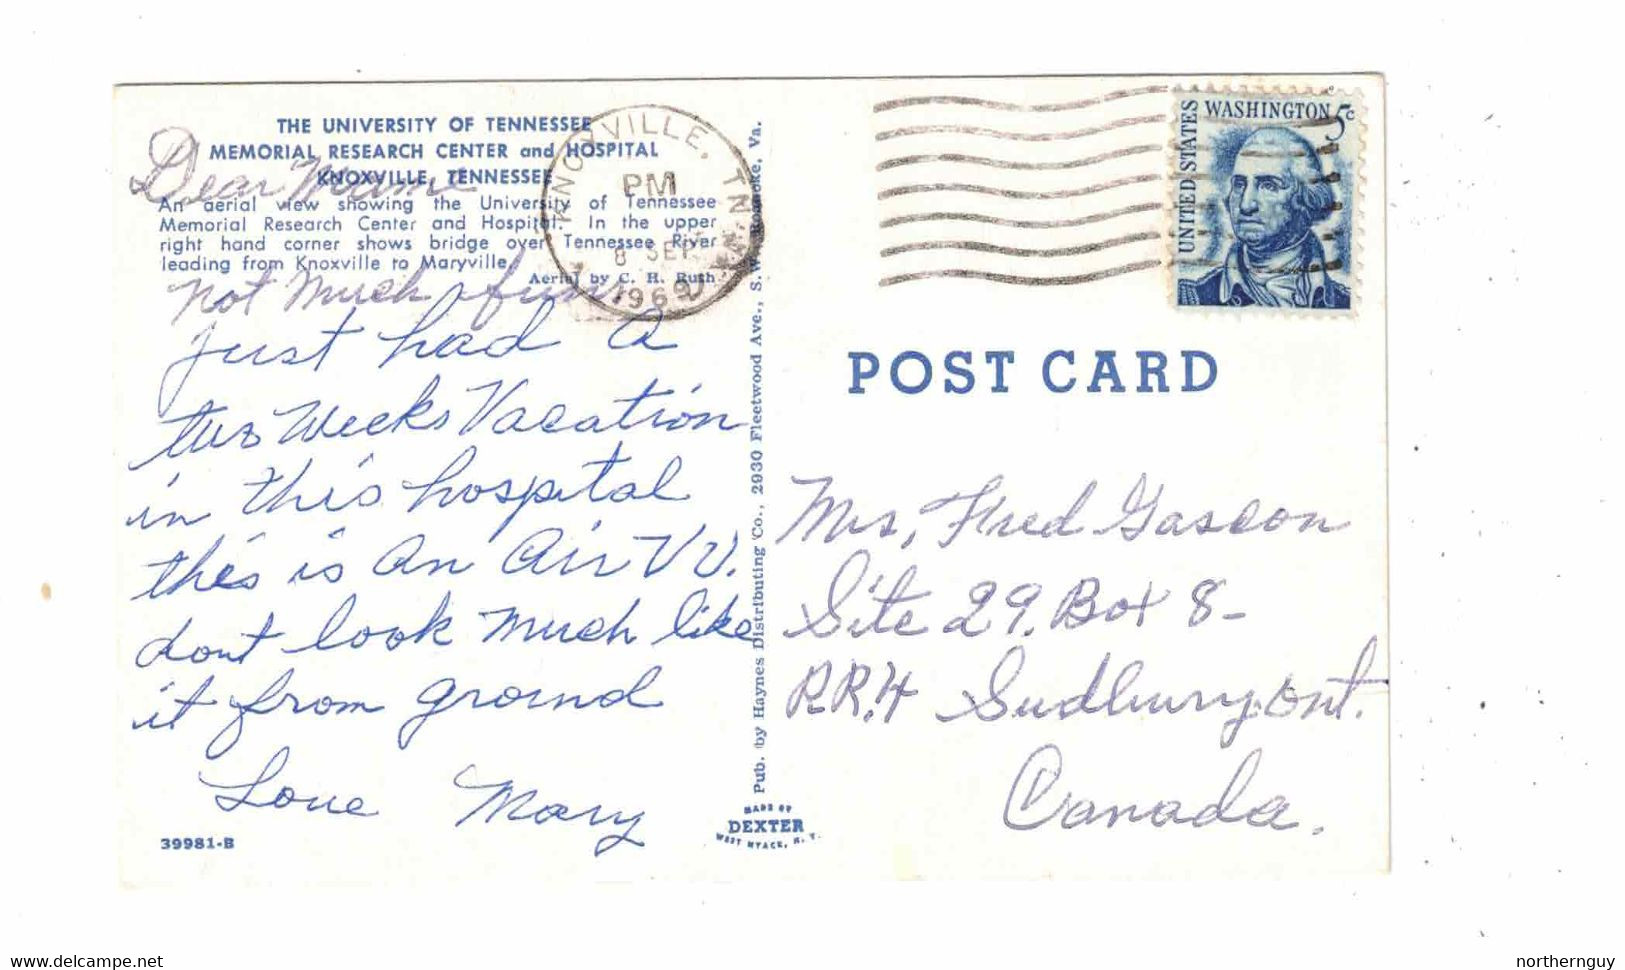 THE UNIVERSITY OF TENNESSEE
MEMORIAL RESEARCH CENTER and HOSPITAL
KNOXVILLE, TENNESSEE
An aerial view showing the University of Tennessee
Memorial Research Center and Hospital. In the upper
right hand corner shows bridge over Tennessee River
leading from Knoxville to Maryville.
Aerial by C. H. Ruth
Dear
not Much fun
just had A
two Weeks Vacation
in this hospital
this is An Air V V.
dont look Much like
it from ground
Love Mary
39981-B
Pub. by Haynes Distributing Co., 2930 Fleetwood Ave., S.W., Roanoke, Va.
MADE BY
DEXTER
WEST NYACK, N. Y.
KNOXVILLE, TN
PM
8 SEP
1969
UNITED STATES
WASHINGTON 5c
POST CARD
Mrs, Fred Gascon
Site 29. Box 8-
RR.4 Sudbury. Ont.
Canada.
delcampe.net
northernguy